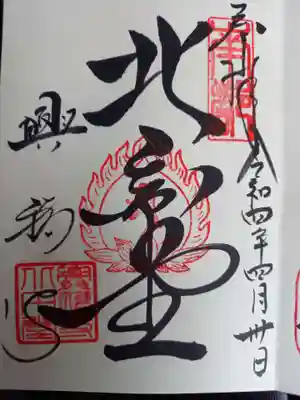 奉拝 令和四年四月卅日
北円堂
興福寺